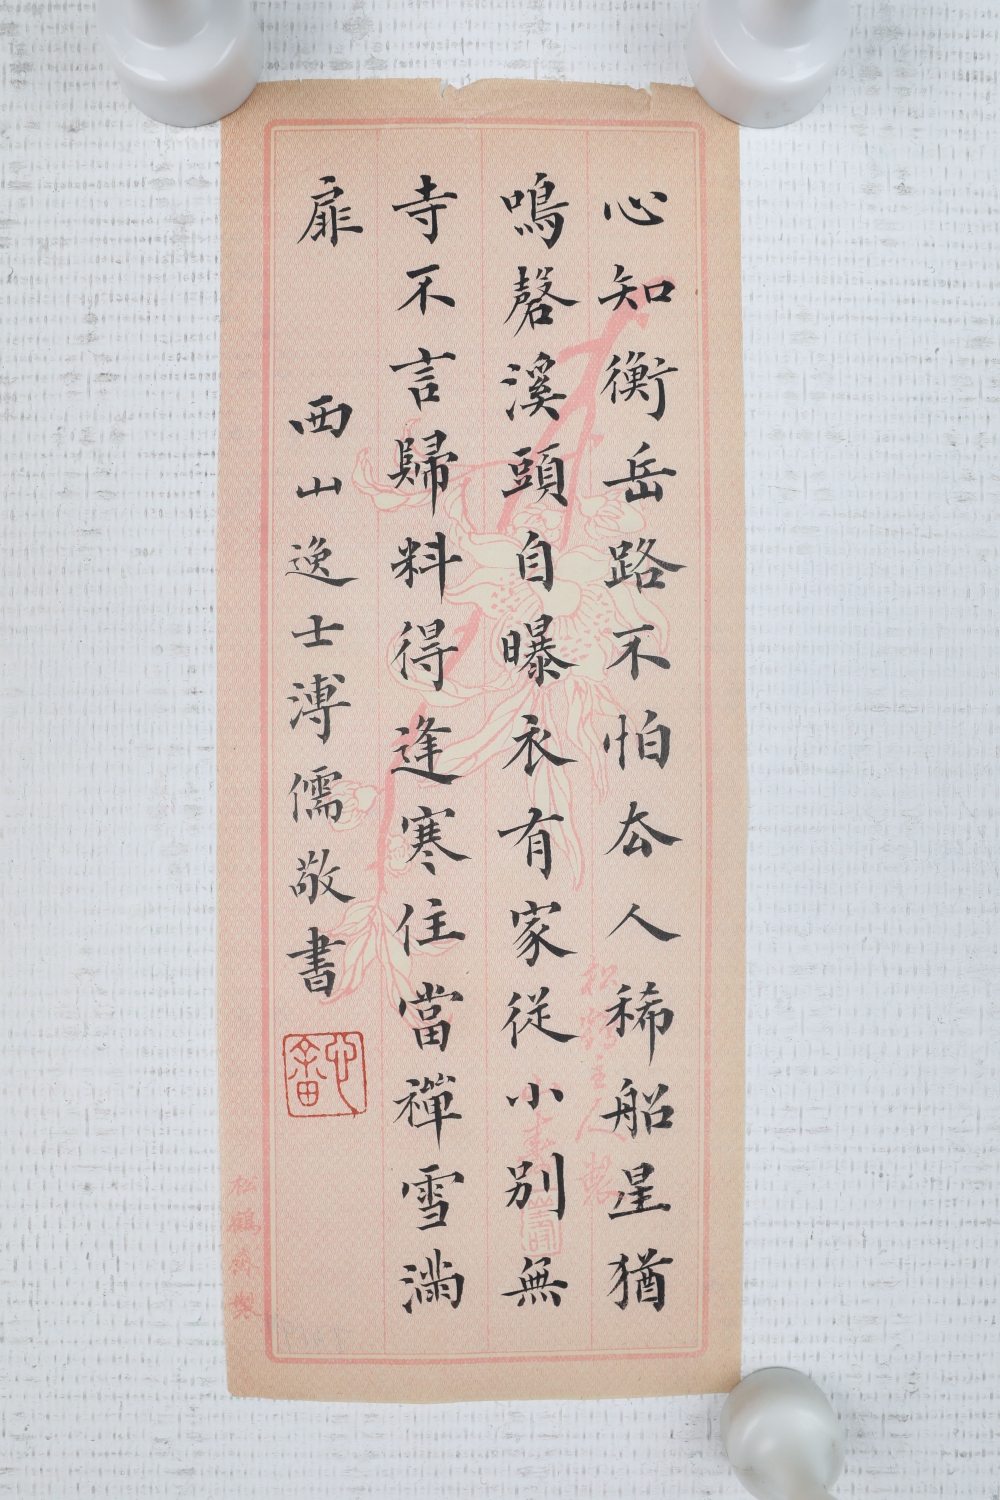 心知衡岳路不怕去人稀船星猶
鳴磬溪頭自曝衣有家從小別無
寺不言歸料得逢寒住當禪雪滿
扉
西山逸士溥儒敬書
松鶴主人製
松鶴齋製